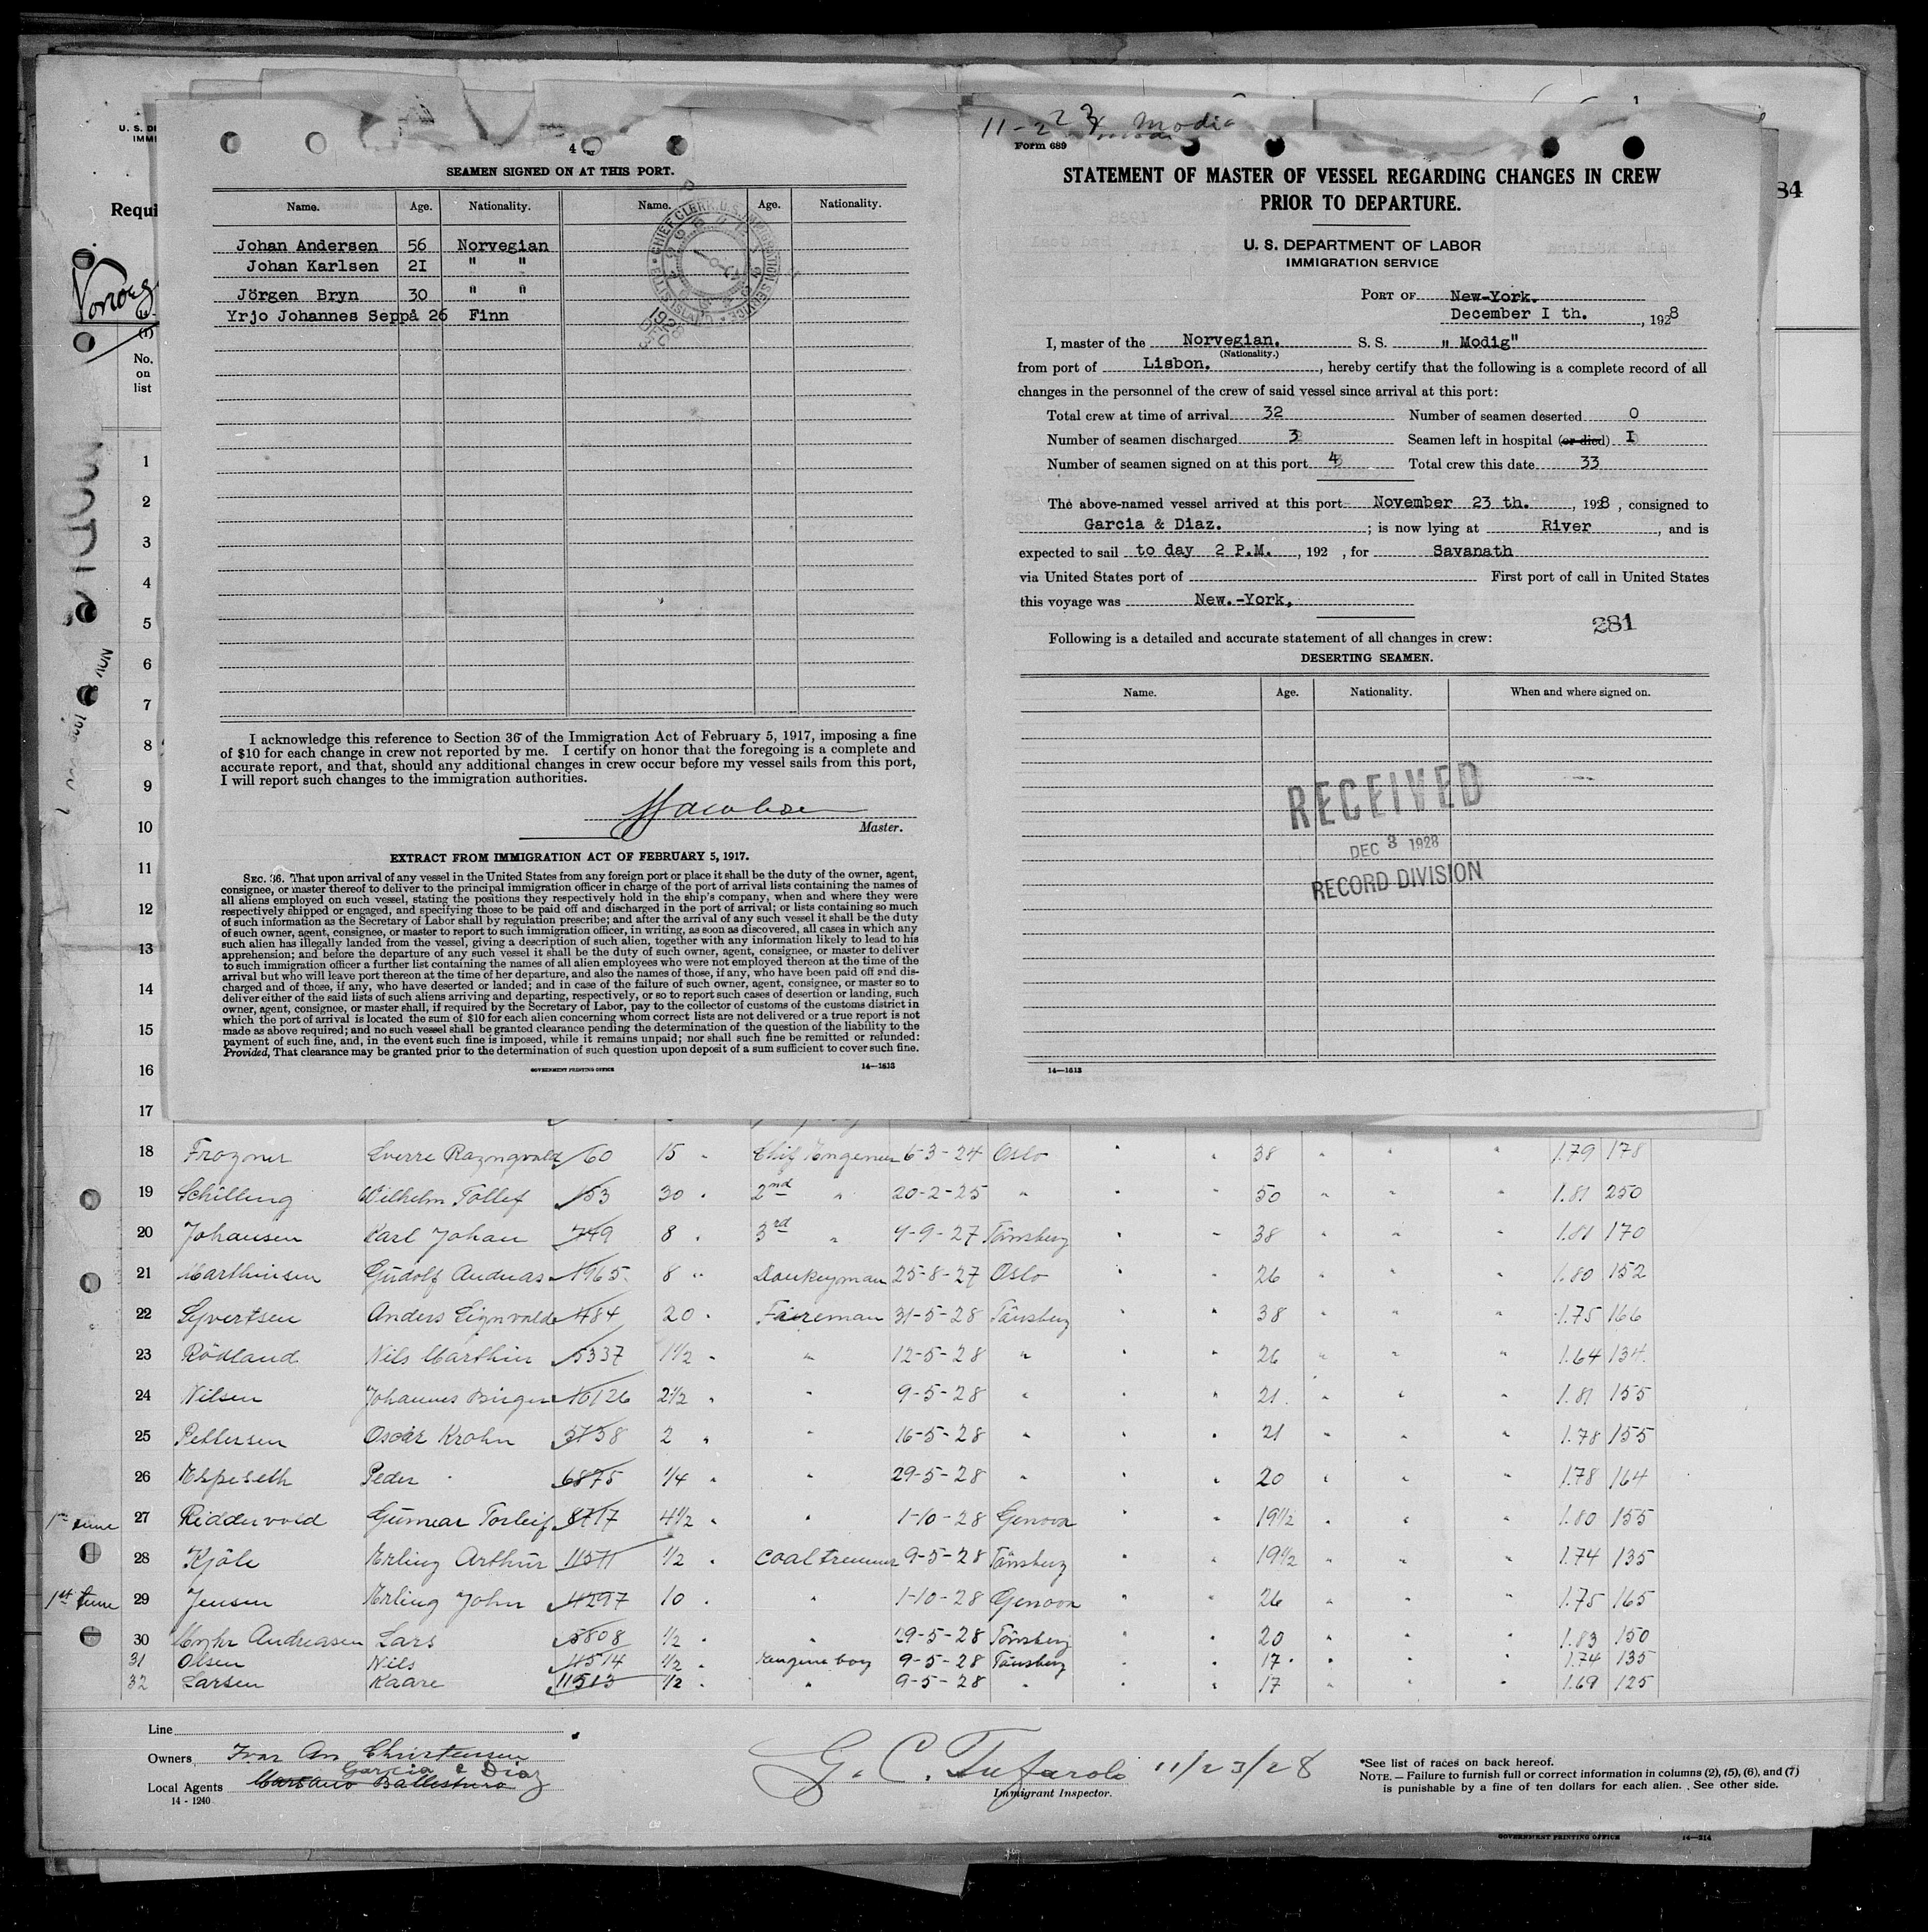 U. S. DE
IMMI
Requi
(1)
No.
on
list
84
4
SEAMEN SIGNED ON AT THIS PORT.
Name. Age. Nationality. Name. Age. Nationality.
CHIEF CLERK, U. S. IMMIGRATION SERVICE
ELLIS ISLAND
1928
Johan Andersen 56 Norvegian
Johan Karlsen 2I " "
Jörgen Bryn 30 " "
Yrjo Johannes Seppå 26 Finn
I acknowledge this reference to Section 36 of the Immigration Act of February 5, 1917, imposing a fine
of $10 for each change in crew not reported by me. I certify on honor that the foregoing is a complete and
accurate report, and that, should any additional changes in crew occur before my vessel sails from this port,
I will report such changes to the immigration authorities.
Master.
EXTRACT FROM IMMIGRATION ACT OF FEBRUARY 5, 1917.
SEC. 36. That upon arrival of any vessel in the United States from any foreign port or place it shall be the duty of the owner, agent,
consignee, or master thereof to deliver to the principal immigration officer in charge of the port of arrival lists containing the names of
all aliens employed on such vessel, stating the positions they respectively hold in the ship's company, when and where they were
respectively shipped or engaged, and specifying those to be paid off and discharged in the port of arrival; or lists containing so much
of such information as the Secretary of Labor shall by regulation prescribe; and after the arrival of any such vessel it shall be the duty
of such owner, agent, consignee, or master to report to such immigration officer, in writing, as soon as discovered, all cases in which any
such alien has illegally landed from the vessel, giving a description of such alien, together with any information likely to lead to his
apprehension; and before the departure of any such vessel it shall be the duty of such owner, agent, consignee, or master to deliver
to such immigration officer a further list containing the names of all alien employees who were not employed thereon at the time of the
arrival but who will leave port thereon at the time of her departure, and also the names of those, if any, who have been paid off and dis-
charged and of those, if any, who have deserted or landed; and in case of the failure of such owner, agent, consignee, or master so to
deliver either of the said lists of such aliens arriving and departing, respectively, or so to report such cases of desertion or landing, such
owner, agent, consignee, or master shall, if required by the Secretary of Labor, pay to the collector of customs of the customs district in
which the port of arrival is located the sum of $10 for each alien concerning whom correct lists are not delivered or a true report is not
made as above required; and no such vessel shall be granted clearance pending the determination of the question of the liability to the
payment of such fine, and, in the event such fine is imposed, while it remains unpaid; nor shall such fine be remitted or refunded:
Provided, That clearance may be granted prior to the determination of such question upon deposit of a sum sufficient to cover such fine.
GOVERNMENT PRINTING OFFICE 14—1313
Form 689
STATEMENT OF MASTER OF VESSEL REGARDING CHANGES IN CREW
PRIOR TO DEPARTURE.
U. S. DEPARTMENT OF LABOR
IMMIGRATION SERVICE
PORT OF New-York.
December I th. , 1928
I, master of the Norvegian. S. S. „ Modig"
(Nationality.)
from port of Lisbon. , hereby certify that the following is a complete record of all
changes in the personnel of the crew of said vessel since arrival at this port:
Total crew at time of arrival 32 Number of seamen deserted 0
Number of seamen discharged 3 Seamen left in hospital (or died) I
Number of seamen signed on at this port 4 Total crew this date 33
The above-named vessel arrived at this port November 23 th. , 1928 , consigned to
Garcia & Diaz. ; is now lying at River , and is
expected to sail to day 2 P.M. , 192 , for Savanath
via United States port of First port of call in United States
this voyage was New.-York,
281
Following is a detailed and accurate statement of all changes in crew:
DESERTING SEAMEN.
Name. Age. Nationality. When and where signed on.
RECEIVED
DEC 3 1928
RECORD DIVISION
14—1313
1
2
3
4
5
6
7
8
9
10
11
12
13
14
15
16
17
18 Sverre 60 15 " 6-3-24 Oslo " " 38 " " " 1.79 178
19 Schilling Wilhelm Tollef 153 30 " 2nd " 20-2-25 " " " 50 " " " 1.81 250
20 Johansen Karl Johan 749 8 " 3rd " 9-27 Tönsberg " " 38 " " " 1.81 170
21 Marthinsen Gudolf Andreas 1965 8 " Donkeyman 25-8-27 Oslo " " 26 " " " 1.80 152
22 Syvertsen Anders 484 20 " Faireman 31-5-28 Tönsberg " " 38 " " " 1.75 166
23 Rödland Nils Marthin 5337 1 1/2 " " 12-5-28 " " " 26 " " " 1.64 134
24 Nilsen Johannes Birger 10126 2 1/2 " " 9-5-28 " " " 21 " " " 1.81 155
25 Pettersen Oscar Krohn 3758 2 " " 16-5-28 " " " 21 " " " 1.78 155
26 Espeseth Peder 6875 1/4 " " 29-5-28 " " " 20 " " " 1.78 164
1st time 27 Riddervold Gunnar Torleif 8717 4 1/2 " " 1-10-28 Genova " " 19 1/2 " " " 1.80 155
28 Kjöle Erling Arthur 11571 1/2 " Coal tremmer 9-5-28 Tönsberg " " 19 1/2 " " " 1.74 135
1st time 29 Jensen Erling John 4297 10 " " 1-10-28 Genova " " 26 " " " 1.75 165
30 Myhr Andreasen Lars 5808 1/2 " " 29-5-28 Tönsberg " " 20 " " " 1.83 150
31 Olsen Nils 4514 1/2 " Engine boy 9-5-28 Tönsberg " " 17 " " " 1.74 135
32 Larsen Kaare 11513 1/2 " " 9-5-28 " " " 17 " " " 1.69 125
Line
Owners Ivar An Christensen
Garcia & Diaz
Local Agents
14 - 1240
G. C. Tufarolo 11/23/28
Immigrant Inspector.
*See list of races on back hereof.
NOTE.—Failure to furnish full or correct information in columns (2), (5), (6), and (7)
is punishable by a fine of ten dollars for each alien. See other side.
GOVERNMENT PRINTING OFFICE 14—214